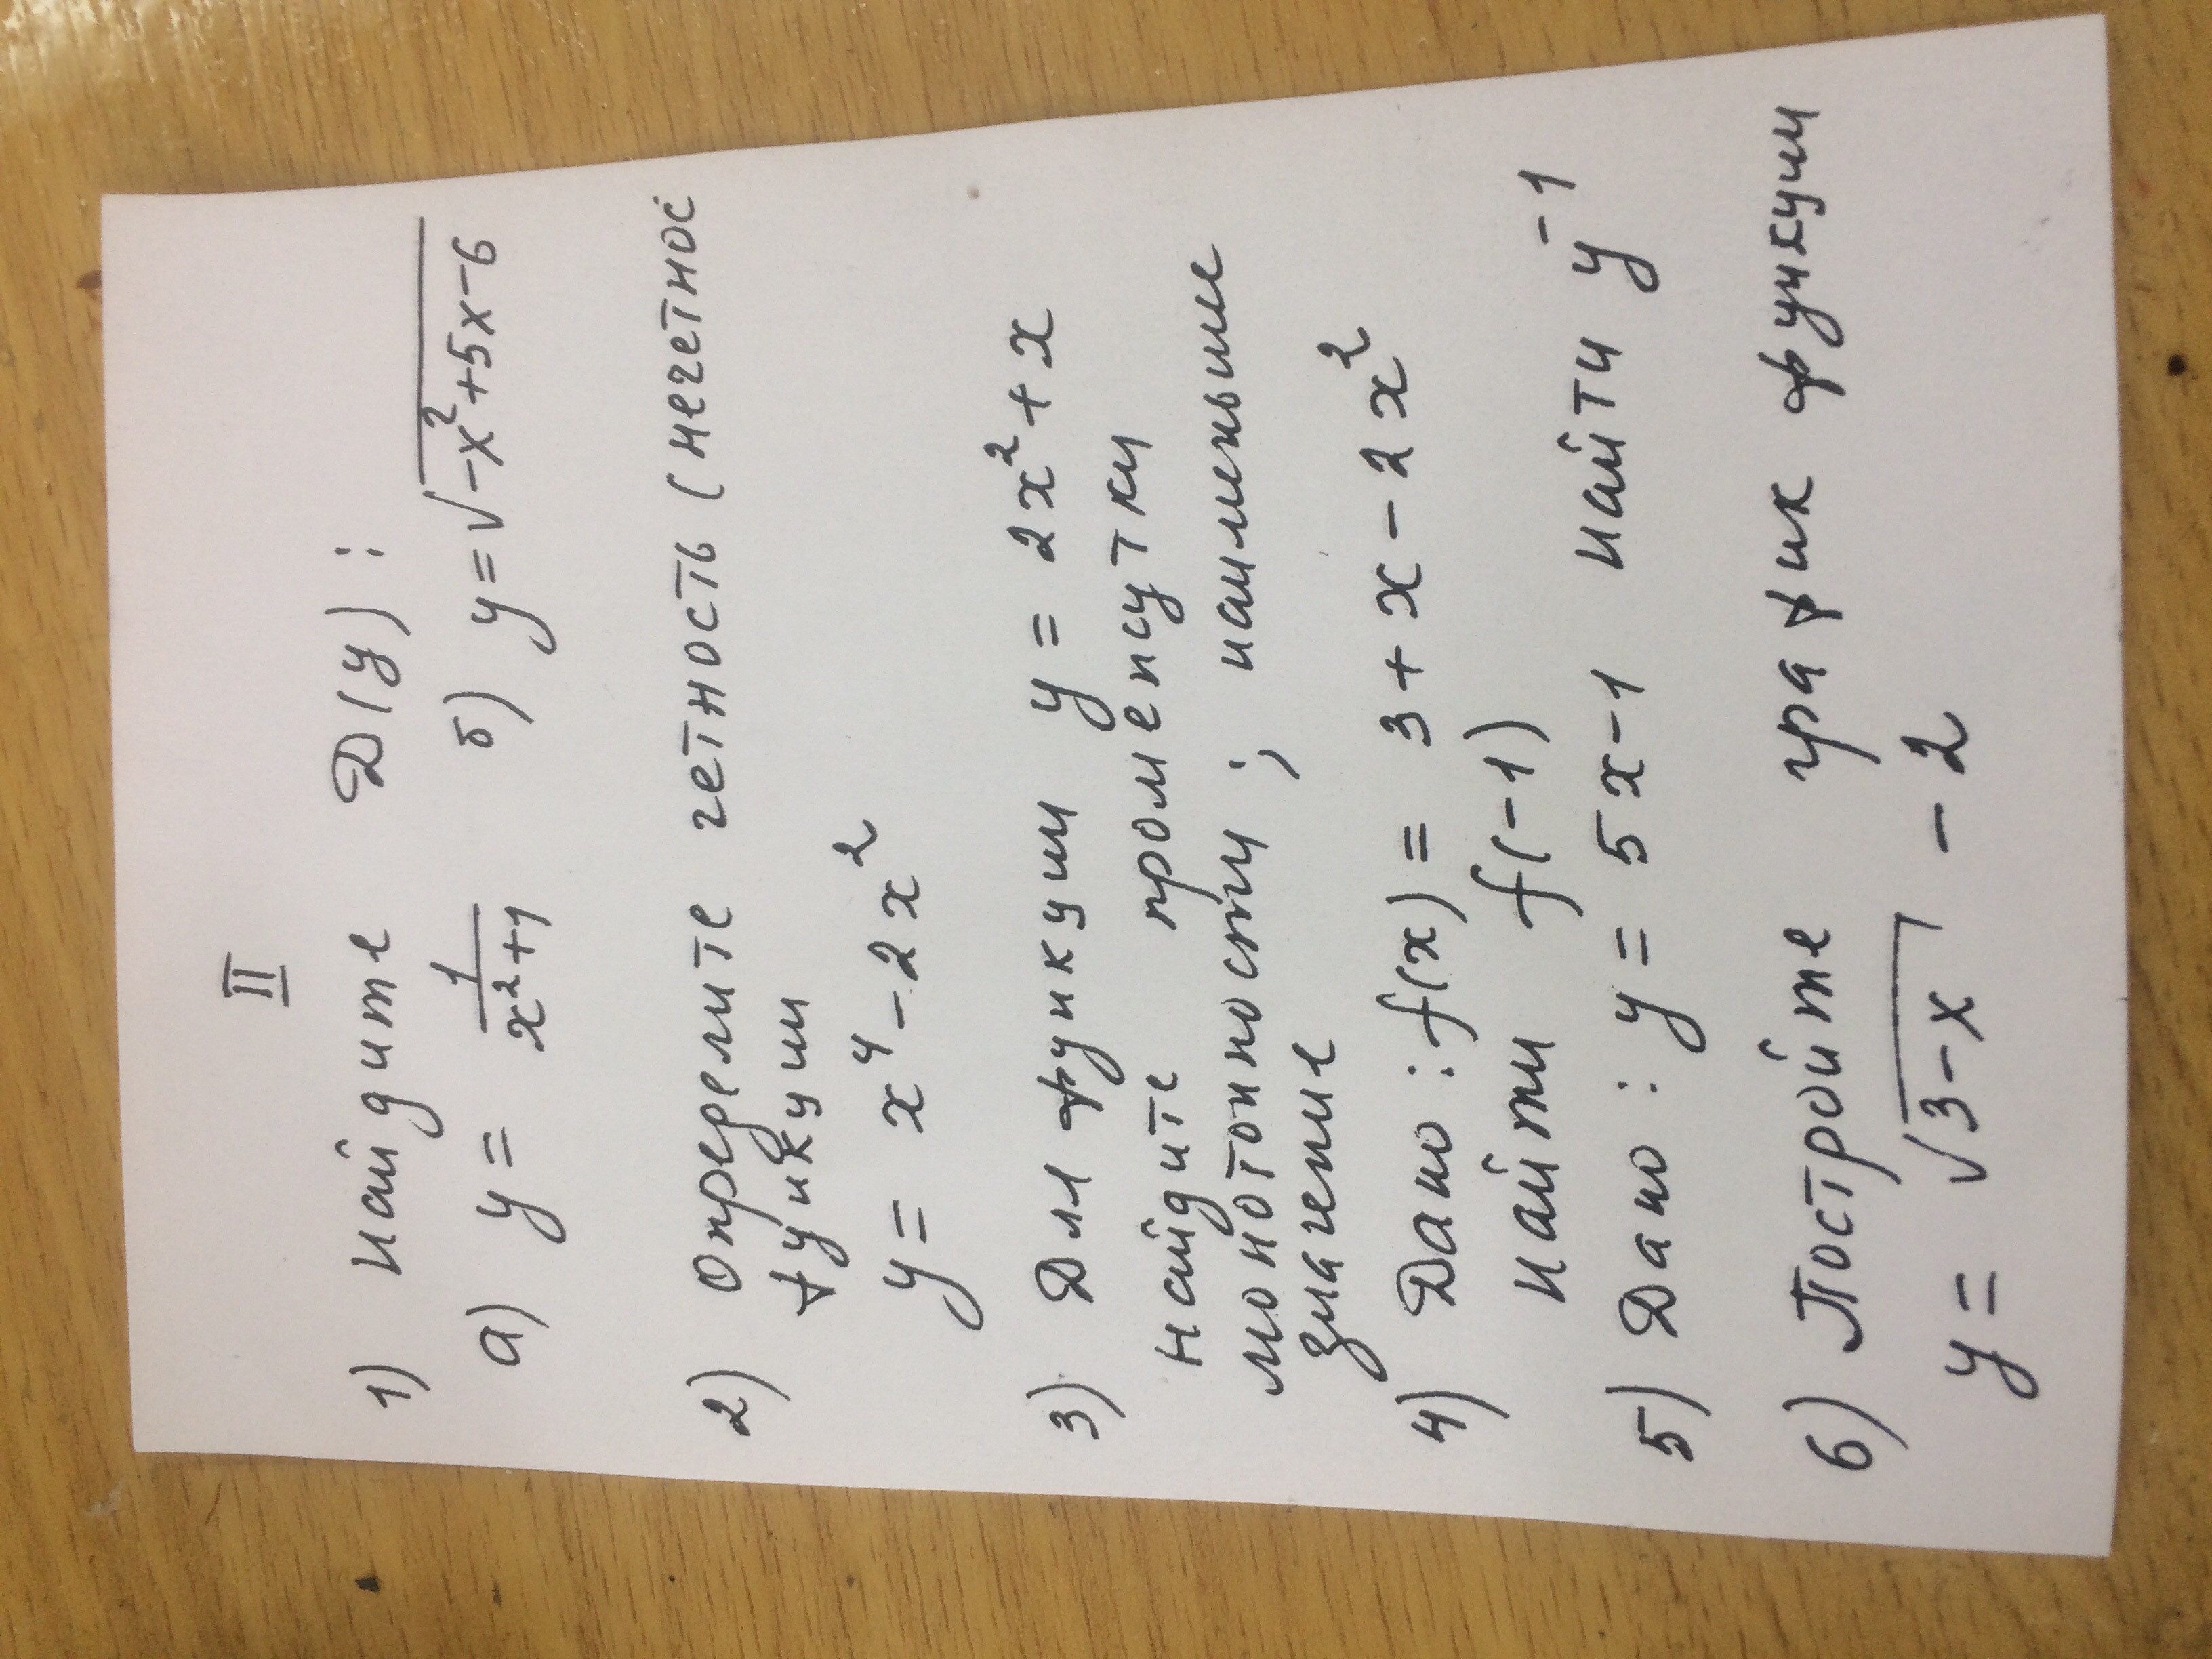 II
1) Найдите D(y):
а) y = 1/(x²+1) б) y = √(-x²+5x-6)
2) Определите четность (нечетнос
функции
y = x⁴ - 2x²
3) Для функции y = 2x² + x
найдите промежутки
монотонности; наименьшие
значение
4) Дано: f(x) = 3 + x - 2x²
найти f(-1)
5) Дано: y = 5x-1 найти y⁻¹
6) Постройте график функции
y = √(3-x) - 2